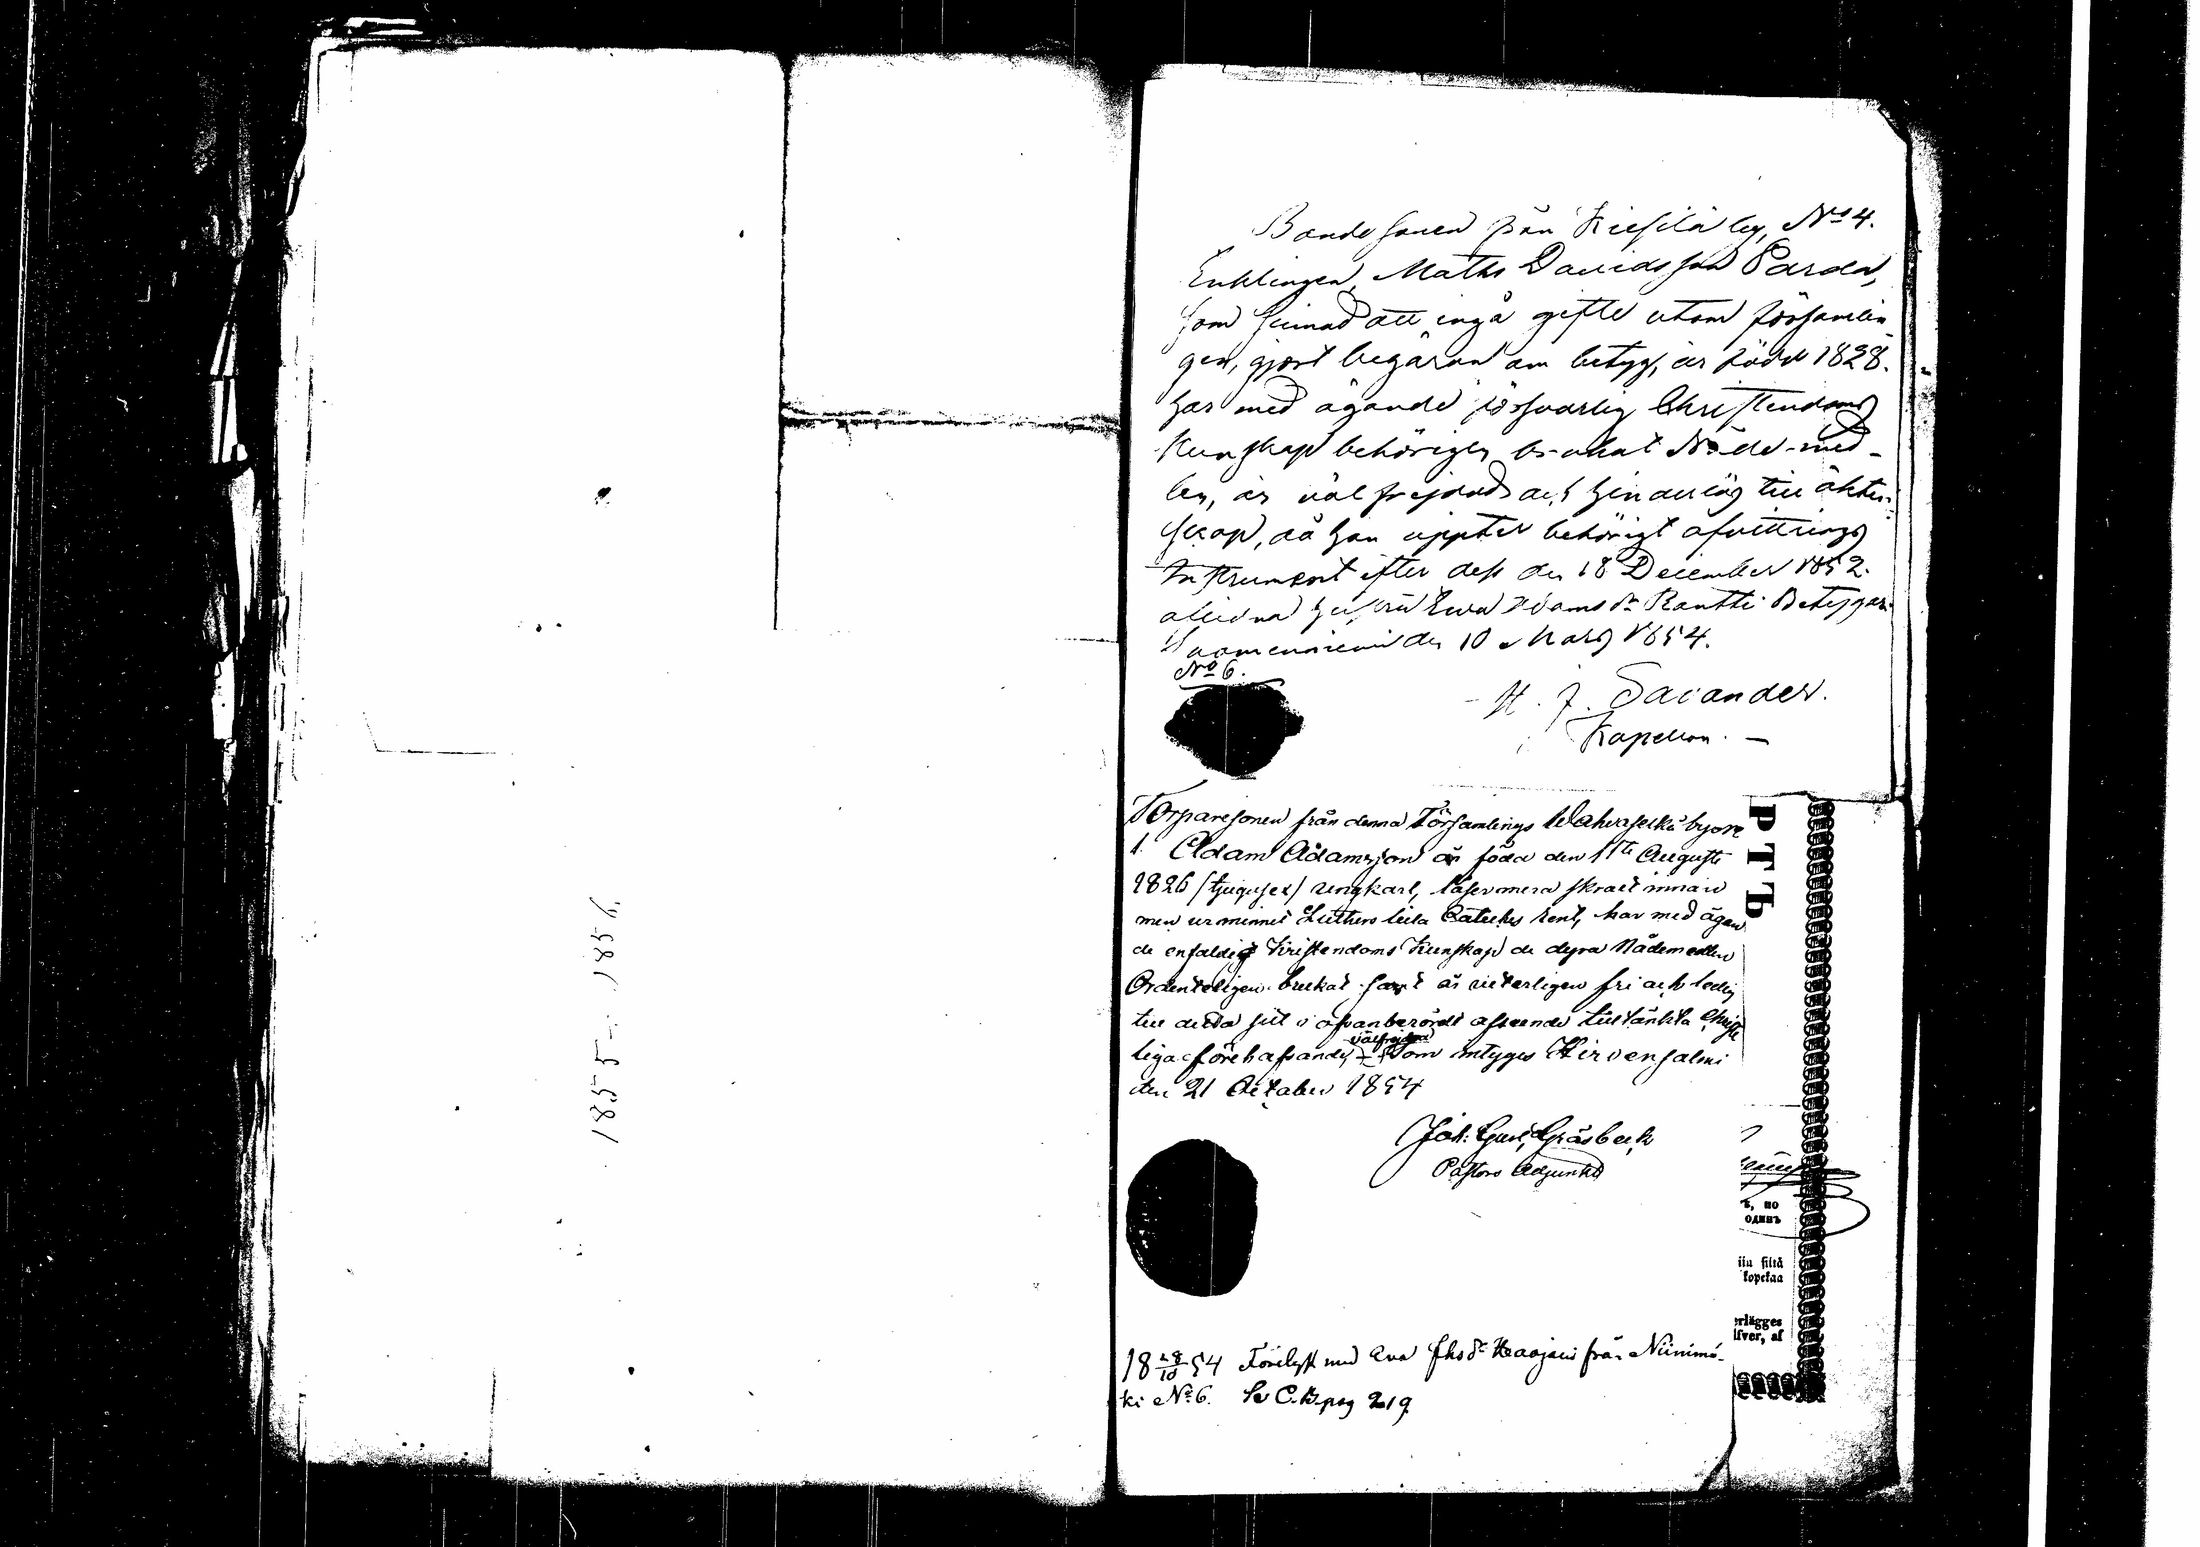 1855–1856.
Bondesonen från Kiesilä by, No 4.
Enklingen, Maths Davidsson Pardan,
som sinnad att ingå gifte utom församlin
gen, gjort begäran om betyg, är född 1828.
har med ägande försvarlig Christendoms
Kunskap behörigen brukat Nåde-med-
len, är väl frejdad och hinderlös till äkten-
skap, då han uppter behörigt afvittrings
Instrument efter dess den 18 December 1852.
aflidna hustru Ewa Adamsdr Rantti Betygar.
Suomenniemi den 10 Mars 1854.
No 6.
H. J. Savander.
Kapellan. —
Torparesonen från denna Församlings Wahvaselkä by No
1. Adam Adamsson är född den 11te Augusti
1826 /tjugusex/ ungkarl, läser mera skralt innan
men ur minnet Luthers lilla Cateches rent, har med ägan
de enfaldig Kristendoms Kunskap de dyra Nådemedlen
Ordenteligen brukat samt är viterligen fri och ledig
till detta sitt i ofvanberörde afseende tilltänkta Christe
liga förehafvande, välfrejdad som intygas Hirvensalmi
den 21 October 1854
Joh: Gust. Gråsbeck
Pastors Adjunkt
18 28/10 54 Förelyst med Eva Johsdr Haajain från Niinimä-
ki No 6. Se C.B. pag 219
РТЪ
ъ, но
одинъ
kopekaa
erlägges
lfver, af